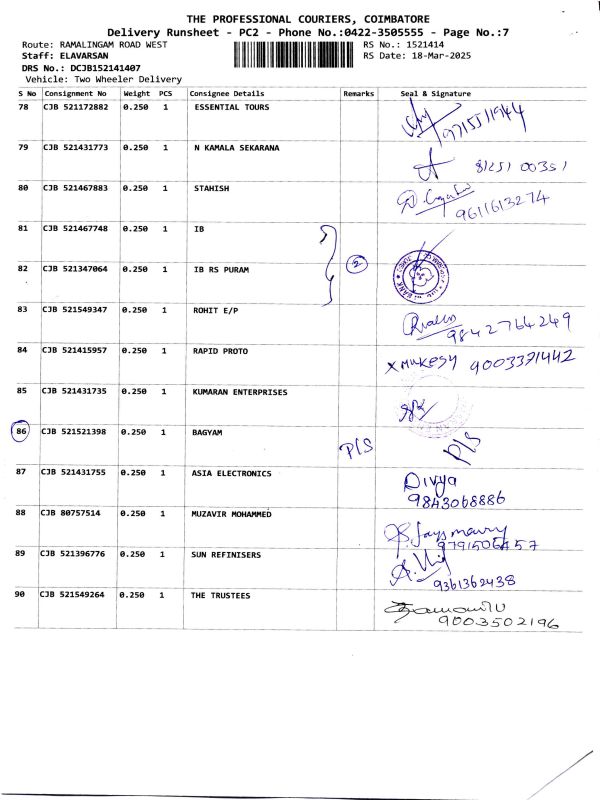 THE PROFESSIONAL COURIERS, COIMBATORE
Delivery Runsheet - PC2 - Phone No.:0422-3505555 - Page No.:7
Route: RAMALINGAM ROAD WEST RS No.: 1521414
Staff: ELAVARSAN RS Date: 18-Mar-2025
DRS No.: DCJB152141407
Vehicle: Two Wheeler Delivery
S No Consignment No Weight PCS Consignee Details Remarks Seal & Signature
78 CJB 521172882 0.250 1 ESSENTIAL TOURS
79 CJB 521431773 0.250 1 N KAMALA SEKARANA 81251 00351
80 CJB 521467883 0.250 1 STAHISH
9611613274
81 CJB 521467748 0.250 1 IB
82 CJB 521347064 0.250 1 IB RS PURAM 2
83 CJB 521549347 0.250 1 ROHIT E/P
9842764249
84 CJB 521415957 0.250 1 RAPID PROTO X MUKESH 9003371442
85 CJB 521431735 0.250 1 KUMARAN ENTERPRISES
86 CJB 521521398 0.250 1 BAGYAM P/S P/S
87 CJB 521431755 0.250 1 ASIA ELECTRONICS Divya
9843068886
88 CJB 80757514 0.250 1 MUZAVIR MOHAMMED
9791506457
89 CJB 521396776 0.250 1 SUN REFINISERS
9361362438
90 CJB 521549264 0.250 1 THE TRUSTEES
9003502196